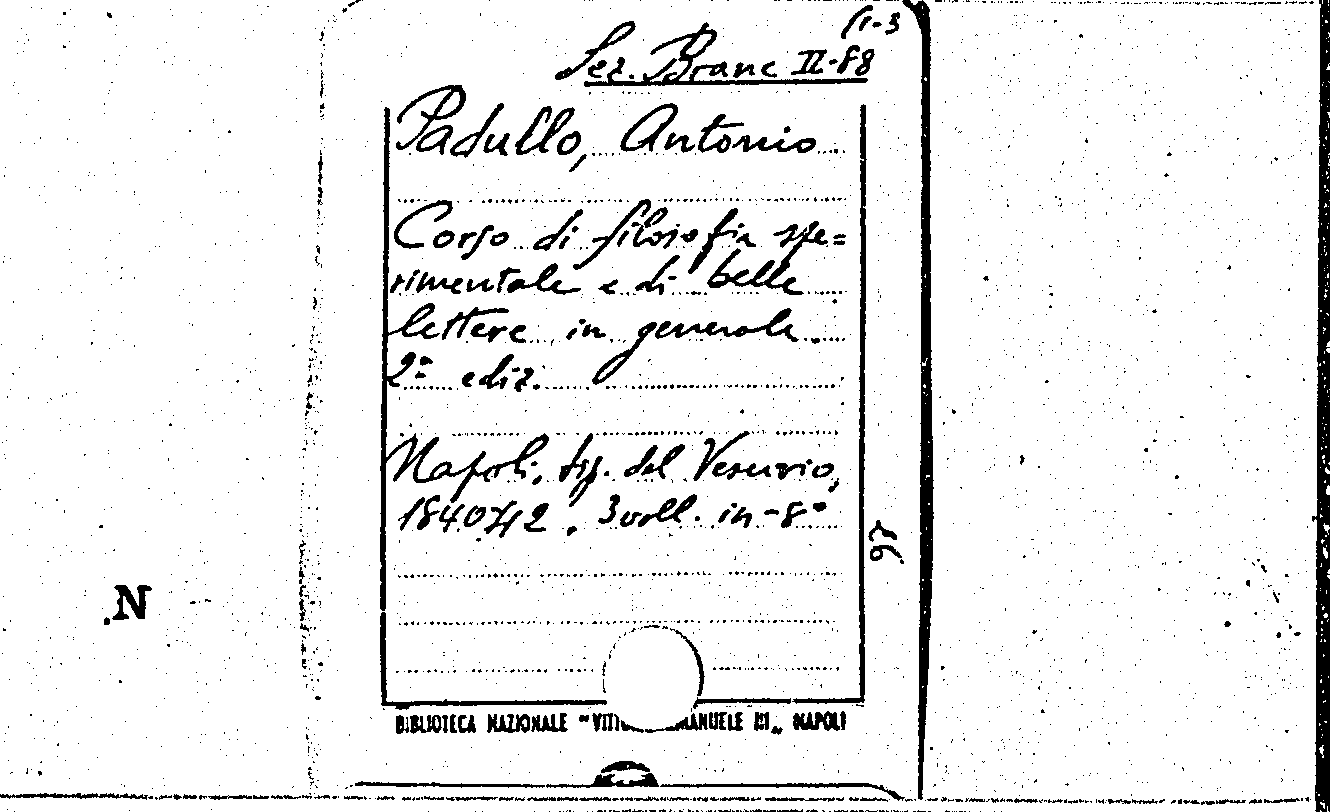 (1-3
Sez. Branc II-88
Padullo, Antonio
Corso di filosofia spe=
rimentale e di belle
lettere in generale.
2ª ediz.
Napoli, tip. del Vesuvio,
1840-42. 3 voll. in-8°
97
N.
BIBLIOTECA NAZIONALE "VITT EMANUELE III„ NAPOLI